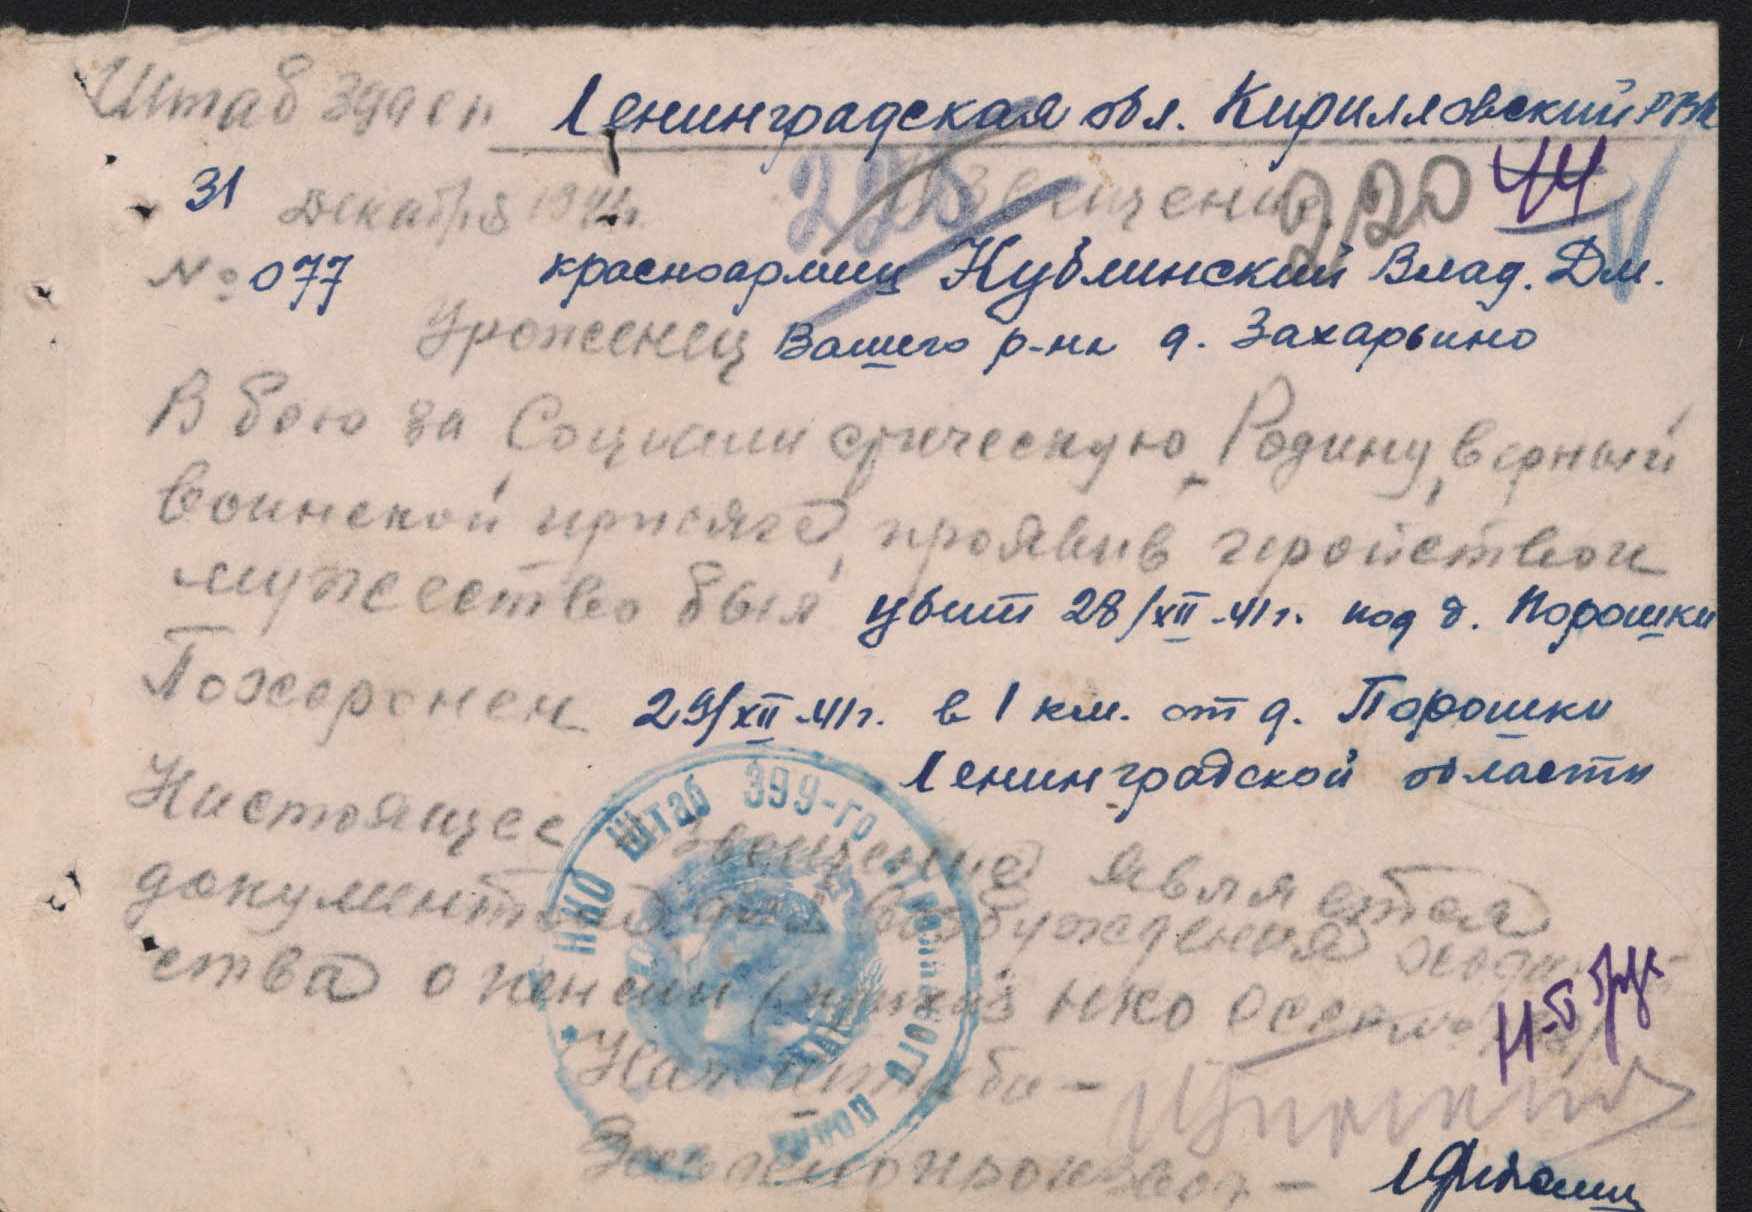 Штаб 399 сп Ленинградская обл. Кирилловский РВК
31 Декабря 1941г. 225 Извещение 220 44
№ 077 красноармеец Кублинский Влад. Дм.
Уроженец Вашего р-на д. Захарьино
В бою за Социалистическую Родину, верный
воинской присяге, проявив геройство и
мужество был убит 28/XII-41г. под д. Порошки
Похоронен 29/XII-41г. в 1 км. от д. Порошки
Ленинградской области
Настоящее извещение является
документом для возбуждения ходатай-
ства о пенсии (приказ НКО СССР №
Нач штаба –
Зав делопроизвод –
НКО Штаб 399-го стрелкового полка